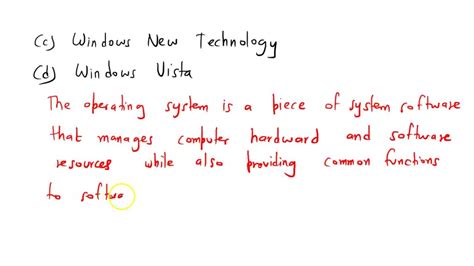 (c) Windows New Technology
(d) Windows Vista
The operating system is a piece of system software
that manages computer hardward and software
resources while also providing common functions
to softwa